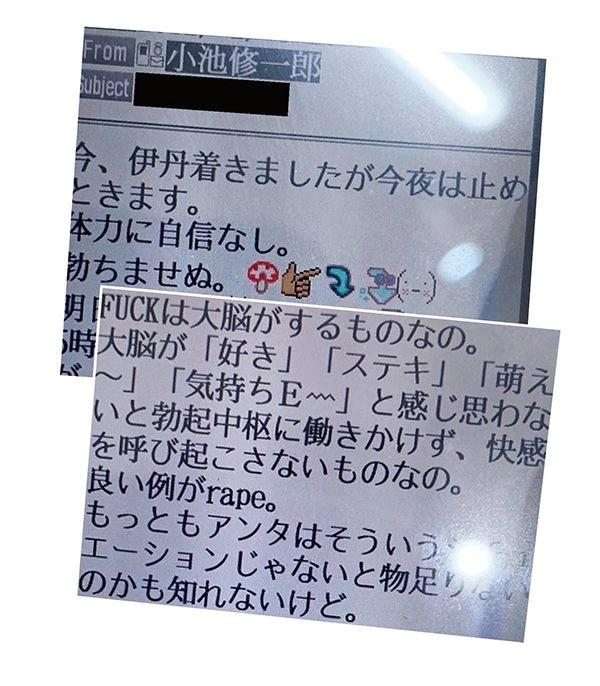 From 小池修一郎
Subject
今、伊丹着きましたが今夜は止め
ときます。
体力に自信なし。
勃ちませぬ。
明日
6時
が
FUCKは大脳がするものなの。
大脳が「好き」「ステキ」「萌え
〜」「気持ちE〰」と感じ思わな
いと勃起中枢に働きかけず、快感
を呼び起こさないものなの。
良い例がrape。
もっともアンタはそういう
エーションじゃないと物足りない
のかも知れないけど。